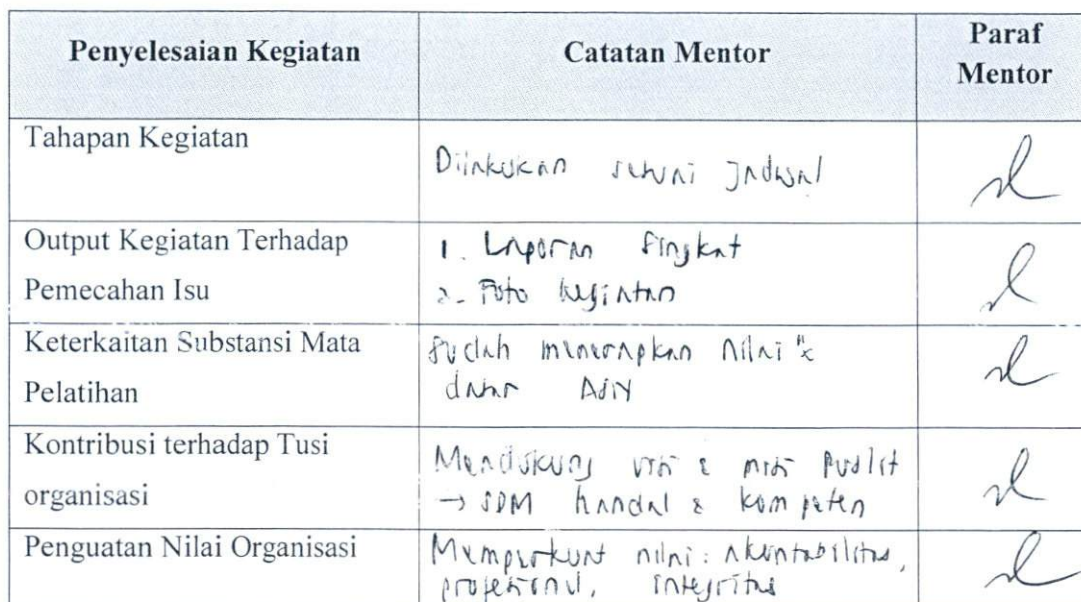 Penyelesaian Kegiatan
Catatan Mentor
Paraf
Mentor
Tahapan Kegiatan
Dilakukan sesuai Jadwal
Output Kegiatan Terhadap
Pemecahan Isu
1. Laporan Singkat
2. Foto kegiatan
Keterkaitan Substansi Mata
Pelatihan
Sudah menerapkan nilai
dasar ASN
Kontribusi terhadap Tusi
organisasi
Mendukung visi & misi
→ SDM handal & kompeten
Penguatan Nilai Organisasi
Memperkuat nilai: akuntabilitas,
profesional, integritas